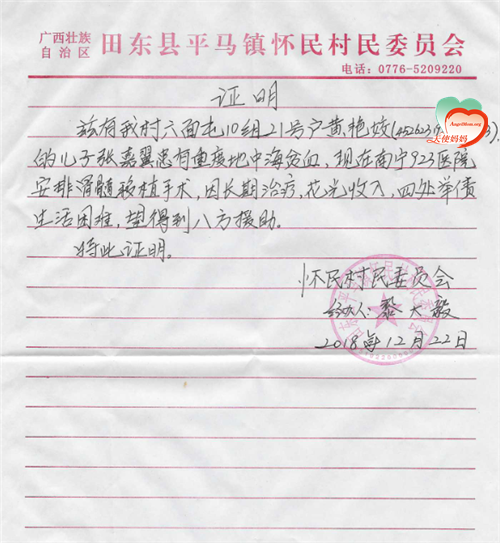 广西壮族
自治区
田东县平马镇怀民村民委员会
电话：0776-5209220
证明
兹有我村六面屯10组21号户黄艳姣(452623
的儿子张嘉翼患有重度地中海贫血，现在南宁923医院
安排骨髓移植手术，因长期治疗，花光收入，四处举债
生活困难，望得到八方援助。
特此证明。
怀民村民委员会
经办人：黎大毅
2018年12月22日
AngelMom.org
天使妈妈